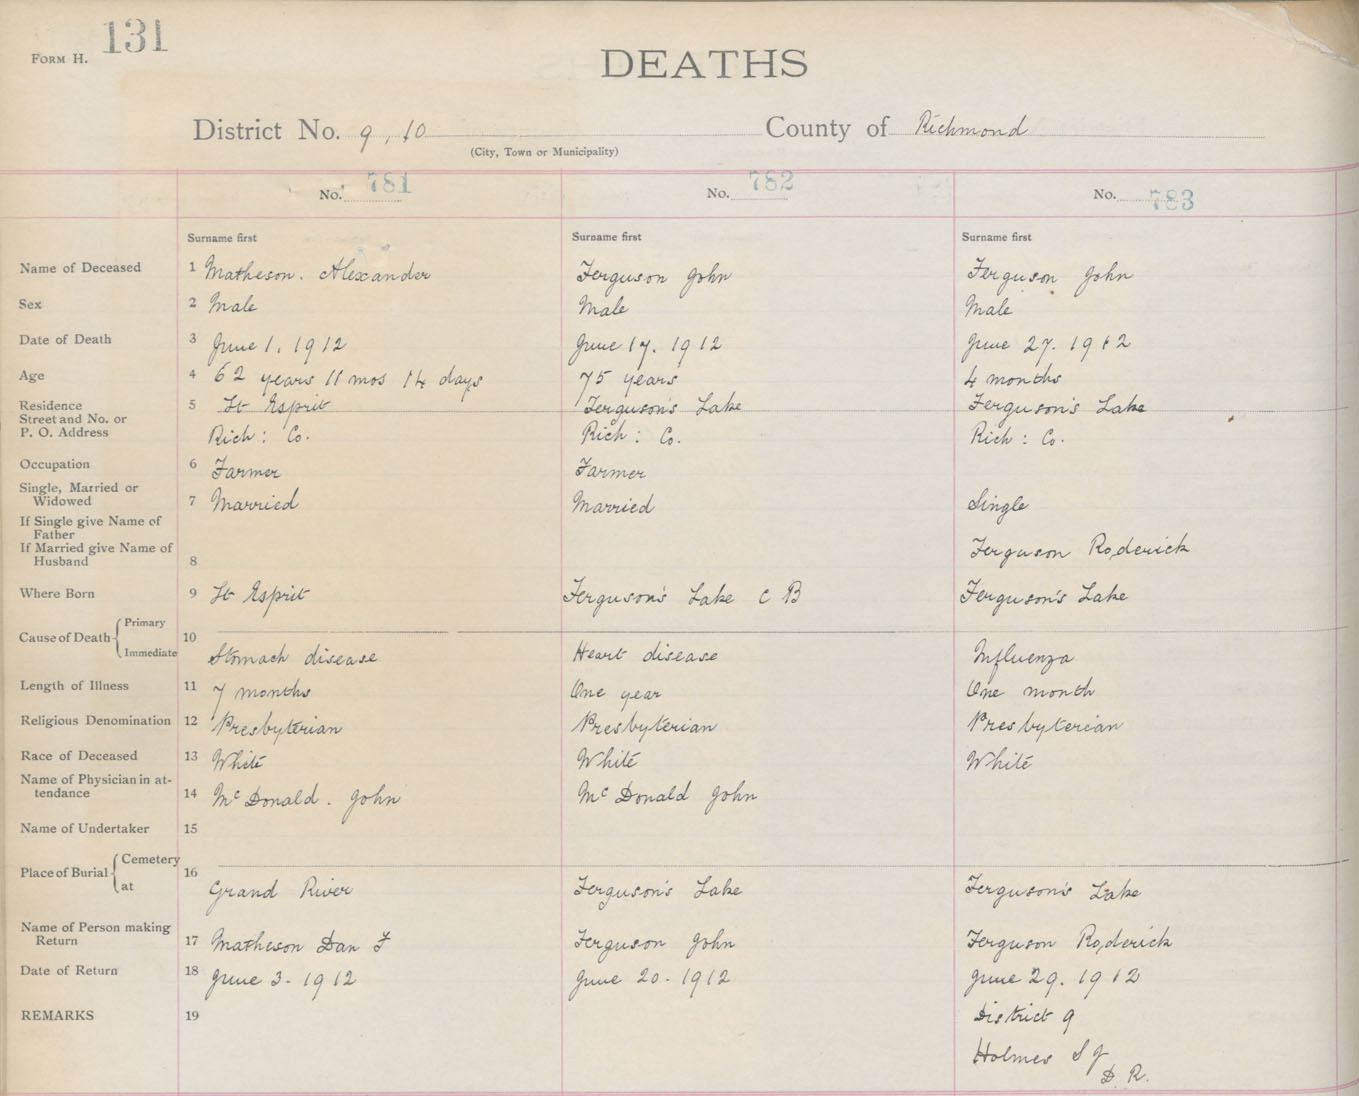 131
FORM H.
DEATHS
District No. 9, 10 County of Richmond
(City, Town or Municipality)
No. 781 No. 782 No. 783
Surname first Surname first Surname first
Name of Deceased 1 Matheson. Alexander Ferguson John Ferguson John
Sex 2 Male Male Male
Date of Death 3 June 1, 1912 June 17, 1912 June 27. 1912
Age 4 62 years 11 mos 14 days 75 years 4 months
Residence 5 St Esprit Ferguson's Lake Ferguson's Lake
Street and No. or
P. O. Address Rich: Co. Rich: Co. Rich: Co.
Occupation 6 Farmer Farmer
Single, Married or
Widowed 7 Married Married Single
If Single give Name of
Father
If Married give Name of Ferguson Roderick
Husband 8
Where Born 9 St Esprit Ferguson's Lake C B Ferguson's Lake
Primary
Cause of Death 10
Immediate Stomach disease Heart disease Influenza
Length of Illness 11 7 months One year One month
Religious Denomination 12 Presbyterian Presbyterian Presbyterian
Race of Deceased 13 White White White
Name of Physician in at-
tendance 14 McDonald. John McDonald John
Name of Undertaker 15
Cemetery
Place of Burial 16
at Grand River Ferguson's Lake Ferguson's Lake
Name of Person making
Return 17 Matheson Dan F Ferguson John Ferguson Roderick
Date of Return 18 June 3 - 1912 June 20 - 1912 June 29. 1912
REMARKS 19 District 9
Holmes S J
D. R.